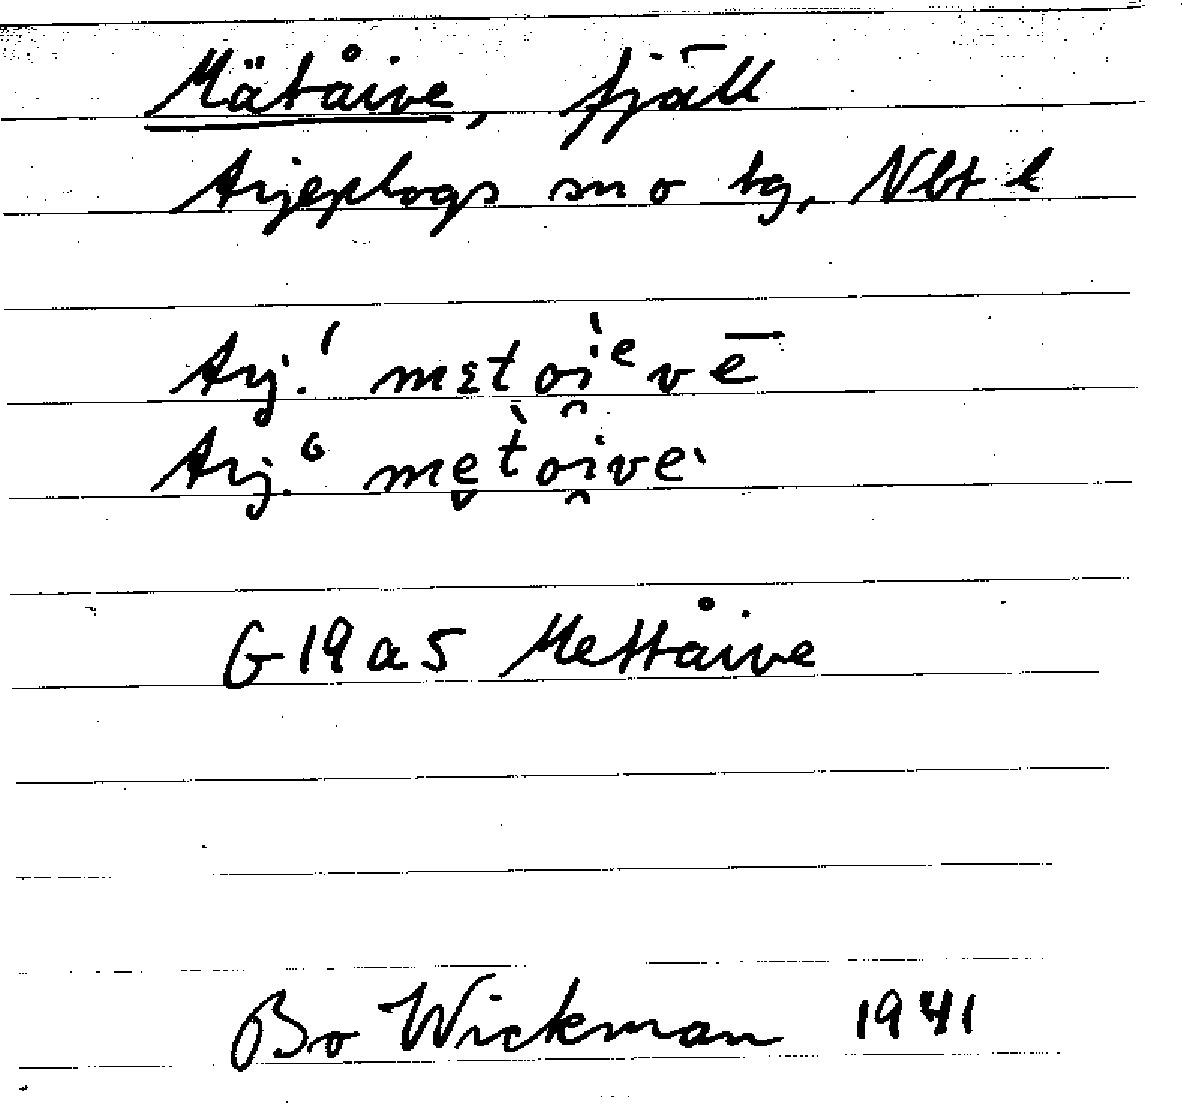 Mätåive, fjäll
Arjeplogs sn o tg, Nbt l
Arj.¹ mętoi̯ᵉvē
Arj.⁶ mę̌t̀oi̯ve
G 19 a 5 Mettåive
Bo Wickman 1941